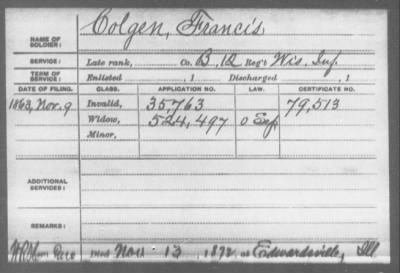 NAME OF SOLDIER: Colgen, Francis
SERVICE: Late rank, Co. B, 12 Reg't Wis. Inf.
TERM OF SERVICE: Enlisted , 1 Discharged , 1
DATE OF FILING. CLASS. APPLICATION NO. LAW. CERTIFICATE NO.
1863, Nov. 9 Invalid, 35,763 79,513
Widow, 524,497
Minor,
ADDITIONAL SERVICES:
REMARKS:
Died Nov. 13, 1872, at Edwardsville, Ill